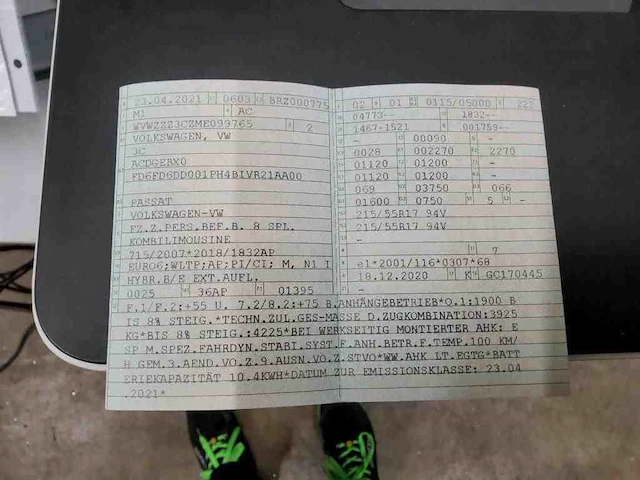 23.04.2021 0603 BRZ000775
M1 AC
WVWZZZ3CZME099765 2
VOLKSWAGEN, VW
3C
ACDGEBX0
FD6FD6DD001PH4BIVR21AA00
PASSAT
VOLKSWAGEN-VW
FZ.Z.PERS.BEF.B. 8 SPL.
KOMBILIMOUSINE
715/2007*2018/1832AP
EURO6;WLTP;AP;PI/CI; M, N1 I
HYBR.B/E EXT.AUFL.
0025 36AP 01395
02 01 0115/05000 222
04773-- 1832--
1467-1521 001759--
- 00090 -
0028 002270 2270
01120 01200 -
01120 01200 -
069 03750 066
01600 0750 5 -
215/55R17 94V
215/55R17 94V
-
- 7
e1*2001/116*0307*68
18.12.2020 K GC170445
-
F.1/F.2:+55 U. 7.2/8.2:+75 B.ANHÄNGEBETRIEB*O.1:1900 B
IS 8% STEIG.*TECHN.ZUL.GES-MASSE D.ZUGKOMBINATION:3925
KG*BIS 8% STEIG.:4225*BEI WERKSEITIG MONTIERTER AHK: E
SP M.SPEZ.FAHRDYN.STABI.SYST.F.ANH.BETR.F.TEMP.100 KM/
H GEM.3.AEND.VO.Z.9.AUSN.VO.Z.STVO*WW.AHK LT.EGTG*BATT
ERIEKAPAZITÄT 10.4KWH*DATUM ZUR EMISSIONSKLASSE: 23.04
.2021*